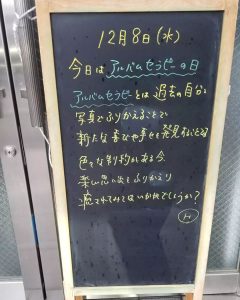 12月8日(水)
今日はアルバムセラピーの日
アルバムセラピーとは過去の自分を
写真でふりかえることで
新たな喜びや幸せを発見すること
色々な制約がある今、
楽しい思い出をふりかえり
癒されてみてはいかがでしょうか?